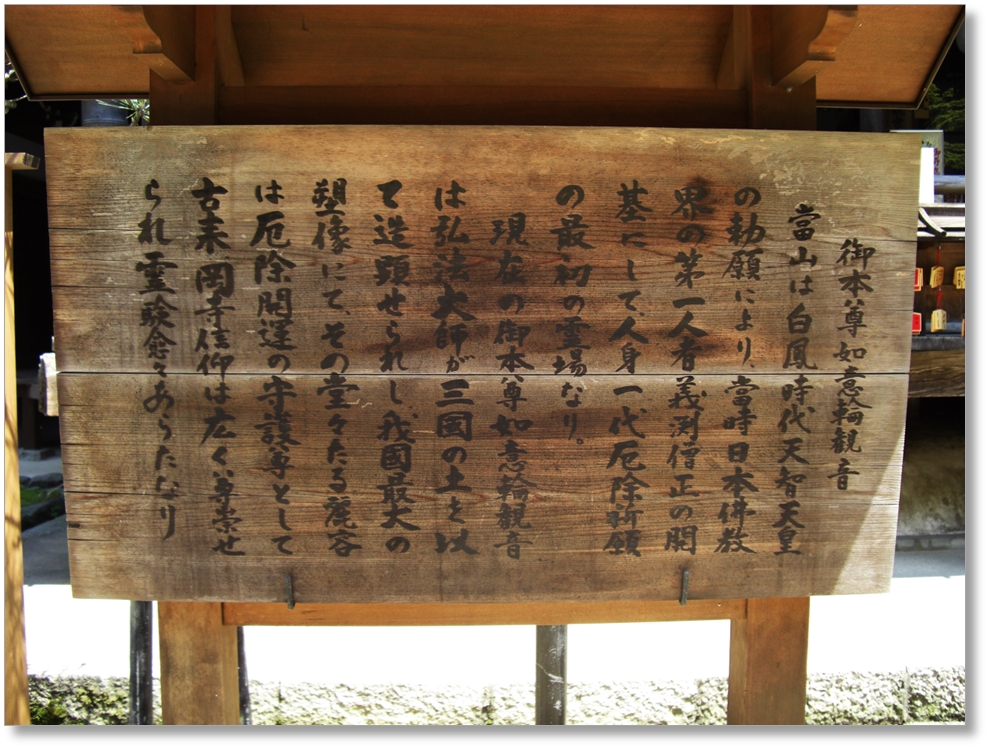 御本尊如意輪観音
當山は白鳳時代天智天皇
の勅願により、當時日本佛教
界の第一人者義渕僧正の開
基にして、人身一代厄除祈願
の最初の霊場なり。
現在の御本尊如意輪観音
は弘法大師が三國の土を以
て造顕せられし、我國最大の
塑像にて、その堂々たる麗容
は厄除開運の守護尊として
古来岡寺信仰は広く、尊崇せ
られ霊験愈々あらたなり